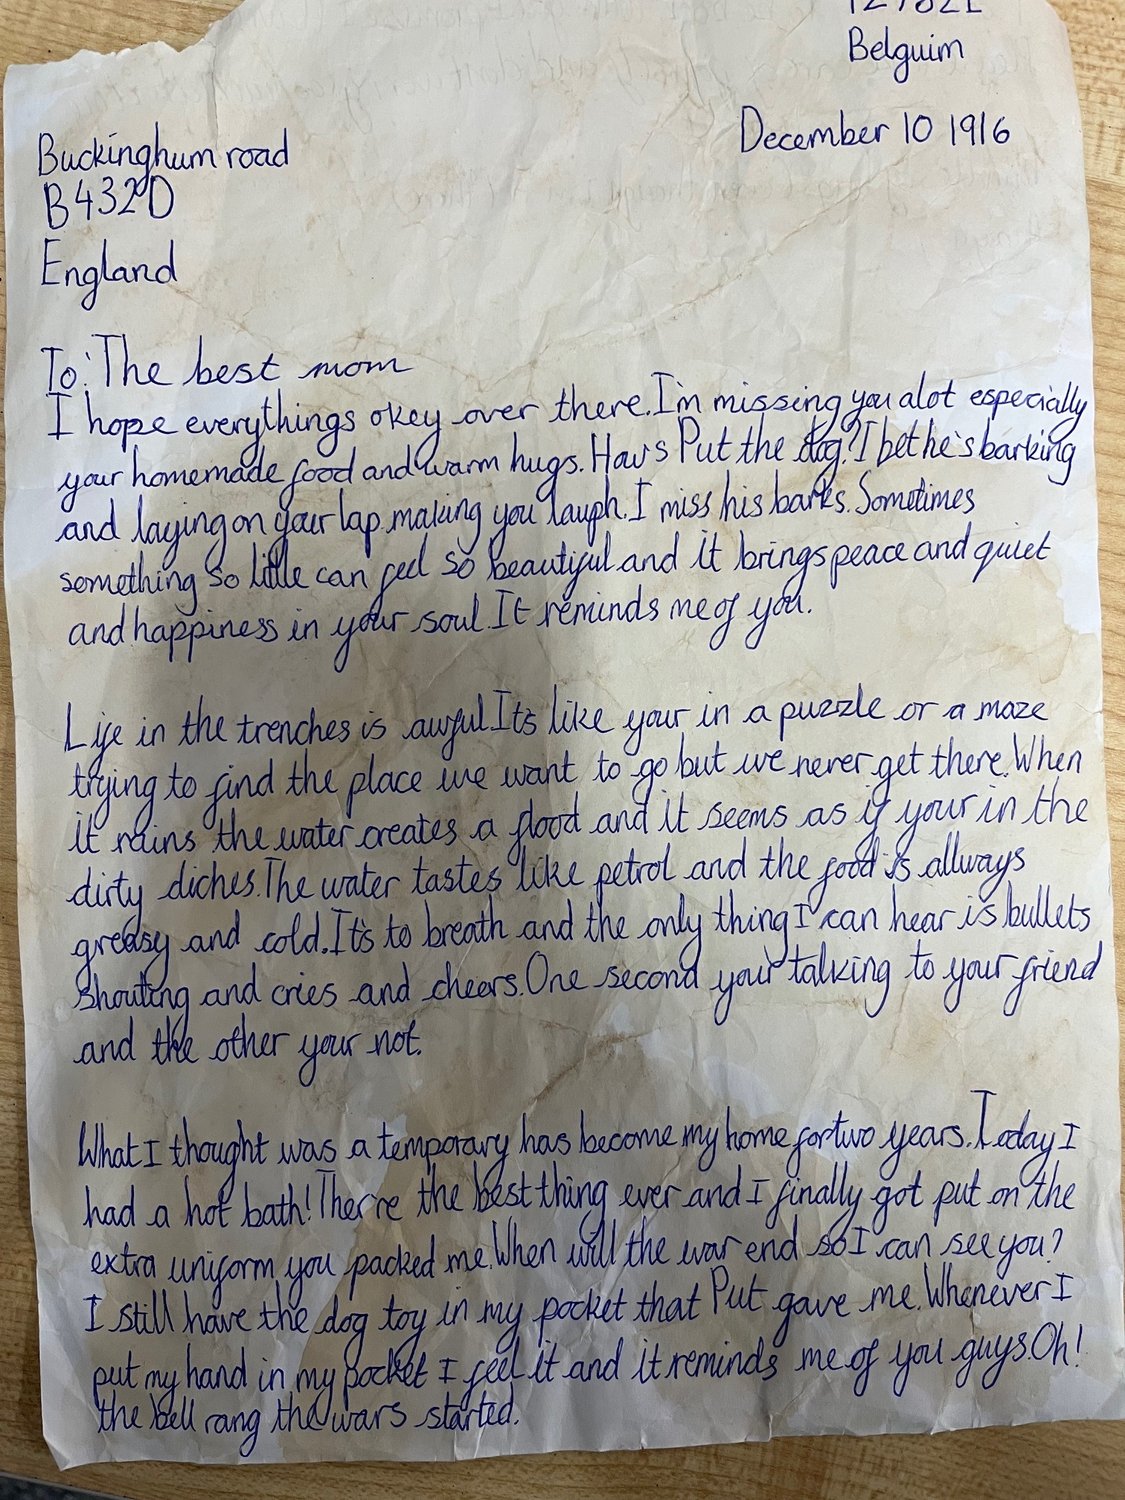 Belguim
December 10 1916
Buckinghum road
B432D
England
To: The best mom
I hope everythings okey over there. I'm missing you alot especially
your homemade food and warm hugs. How's Put the dog? I bet he's barking
and laying on your lap making you laugh. I miss his barks. Sometimes
something so little can feel so beautiful and it brings peace and quiet
and happiness in your soul. It reminds me of you.
Life in the trenches is awful. It's like your in a puzzle or a maze
trying to find the place we want to go but we never get there. When
it rains the water creates a flood and it seems as if your in the
dirty diches. The water tastes like petrol and the food is allways
greasy and cold. It's to breath and the only thing I can hear is bullets
shouting and cries and cheers. One second your talking to your friend
and the other your not.
What I thought was a temporary has become my home for two years. Today I
had a hot bath! Ther're the best thing ever and I finally got put on the
extra uniform you packed me. When will the war end so I can see you?
I still have the dog toy in my pocket that Put gave me. Whenever I
put my hand in my pocket I feel it and it reminds me of you guys. Oh!
the bell rang the wars started.